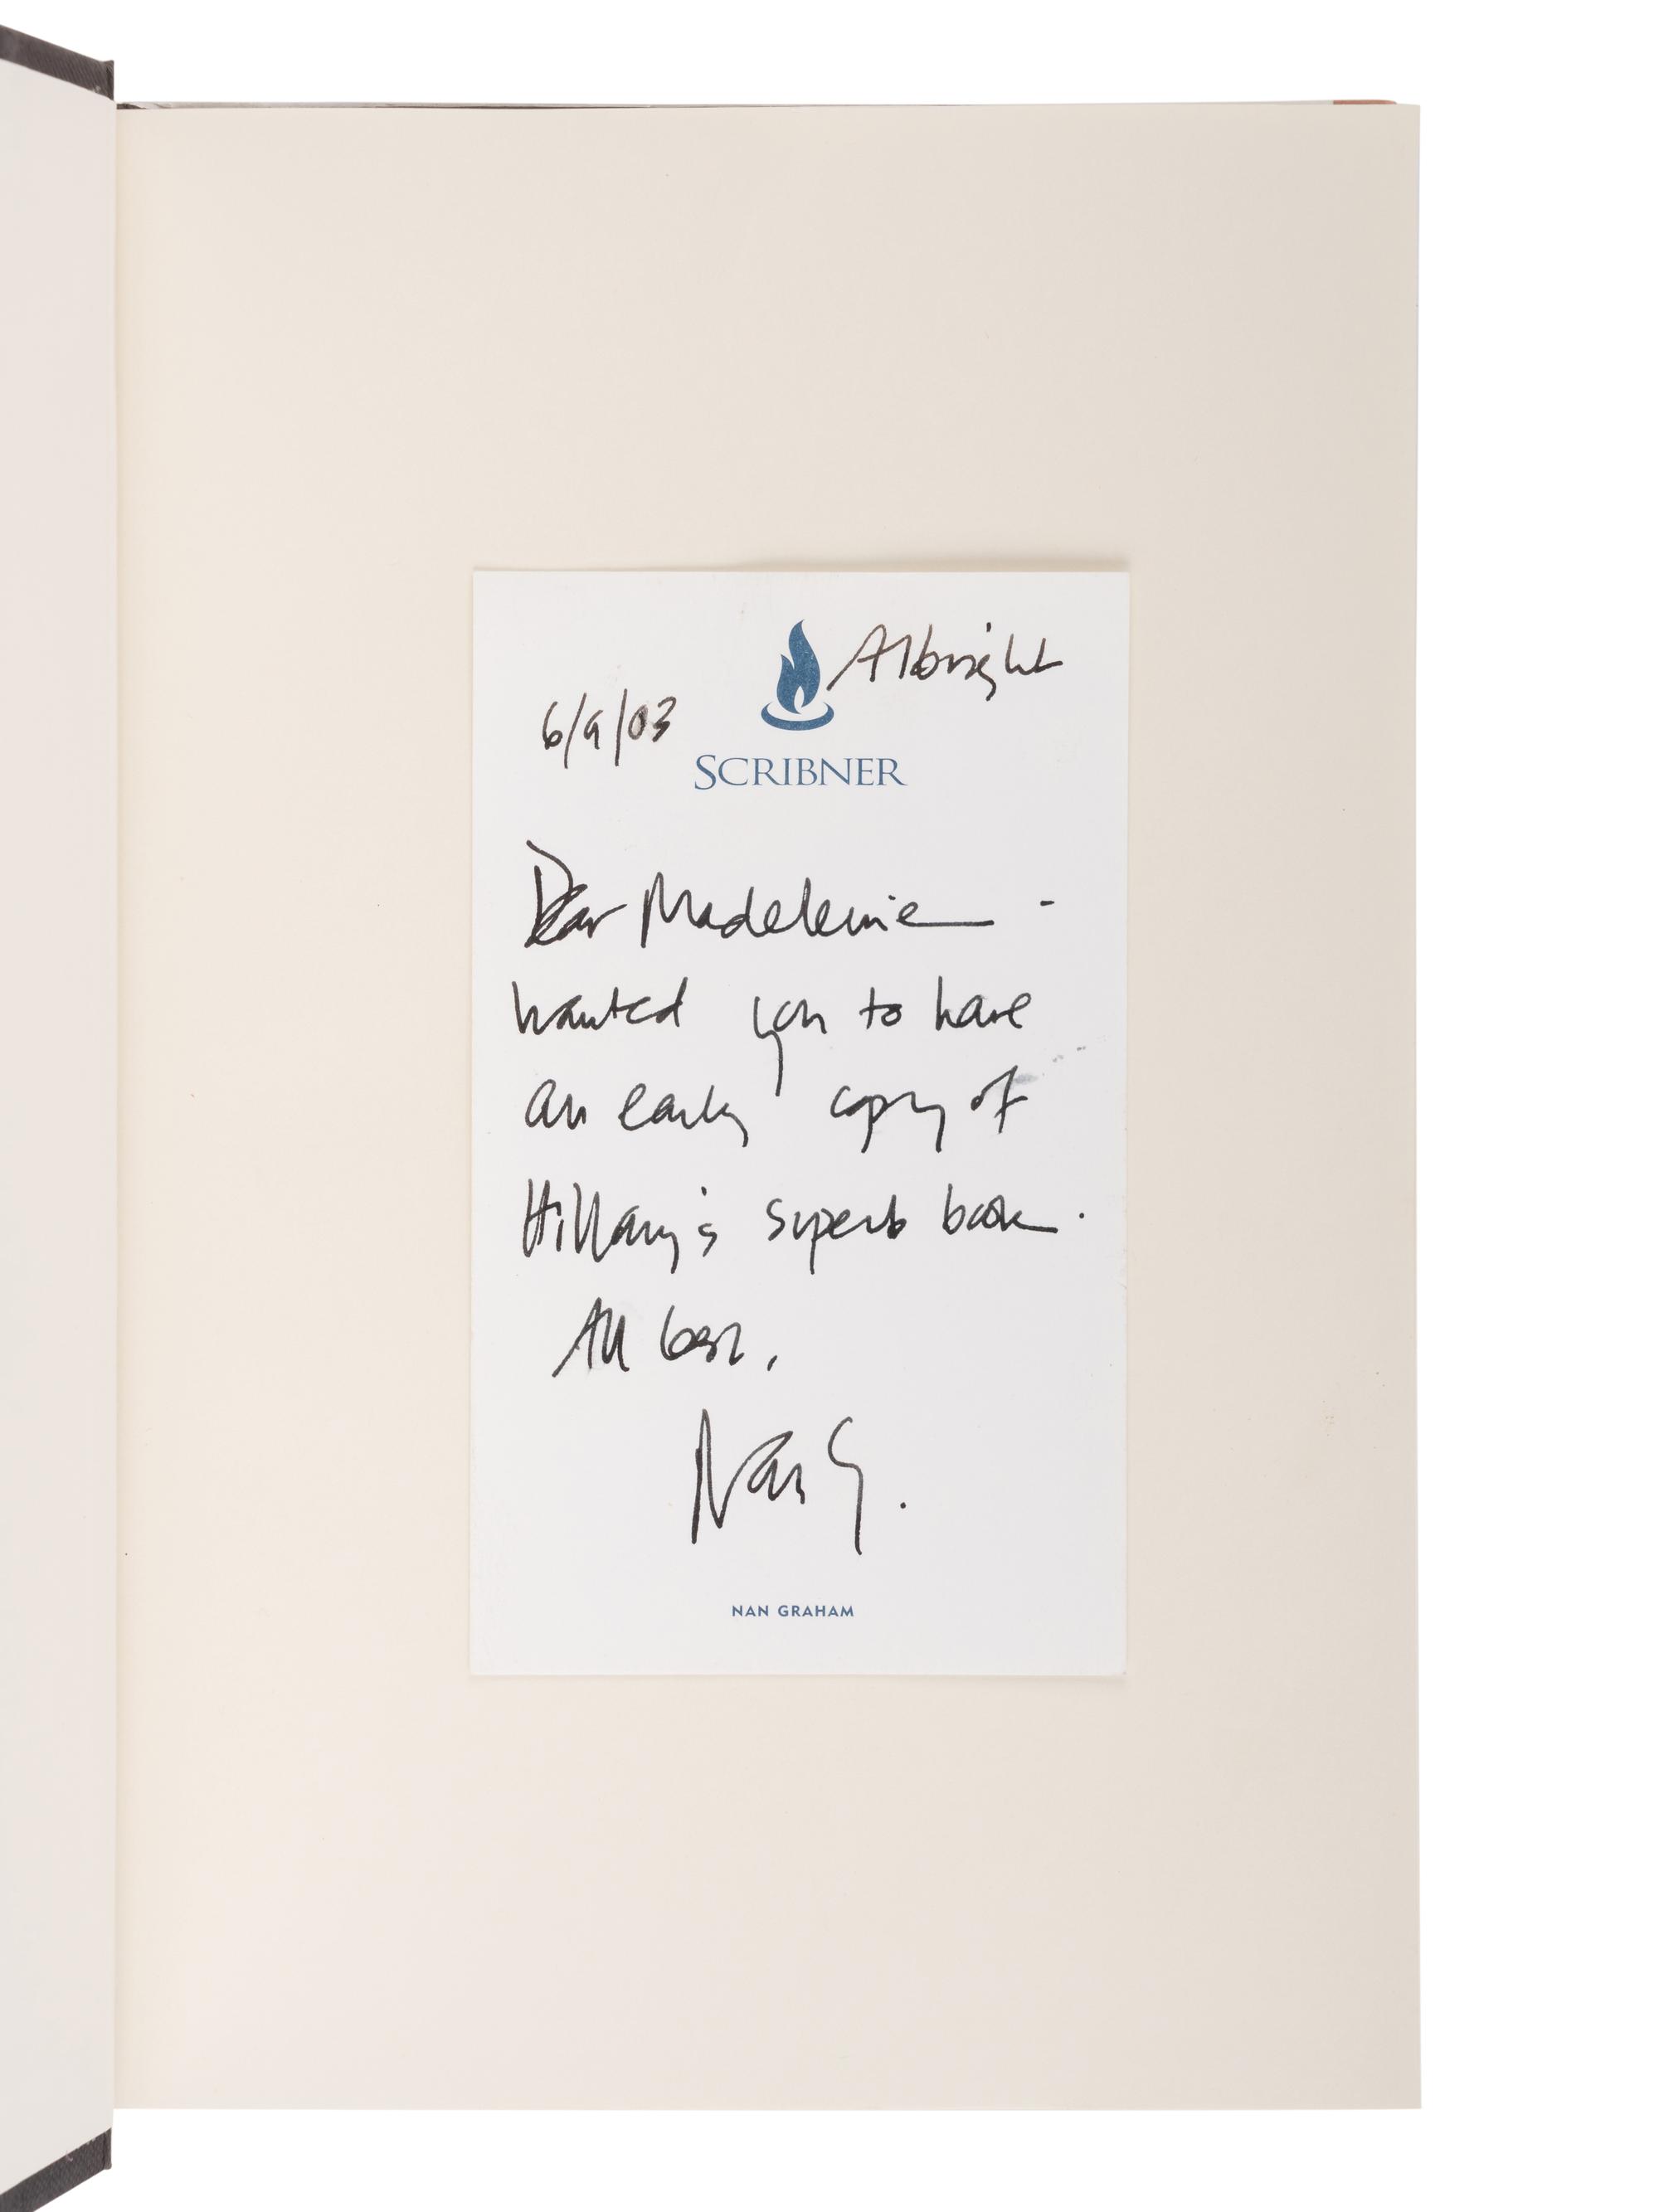 Albright
6/9/03
SCRIBNER
Dear Madeleine -
wanted you to have
an early copy of
Hillary's superb book.
All best,
Nan G.
NAN GRAHAM